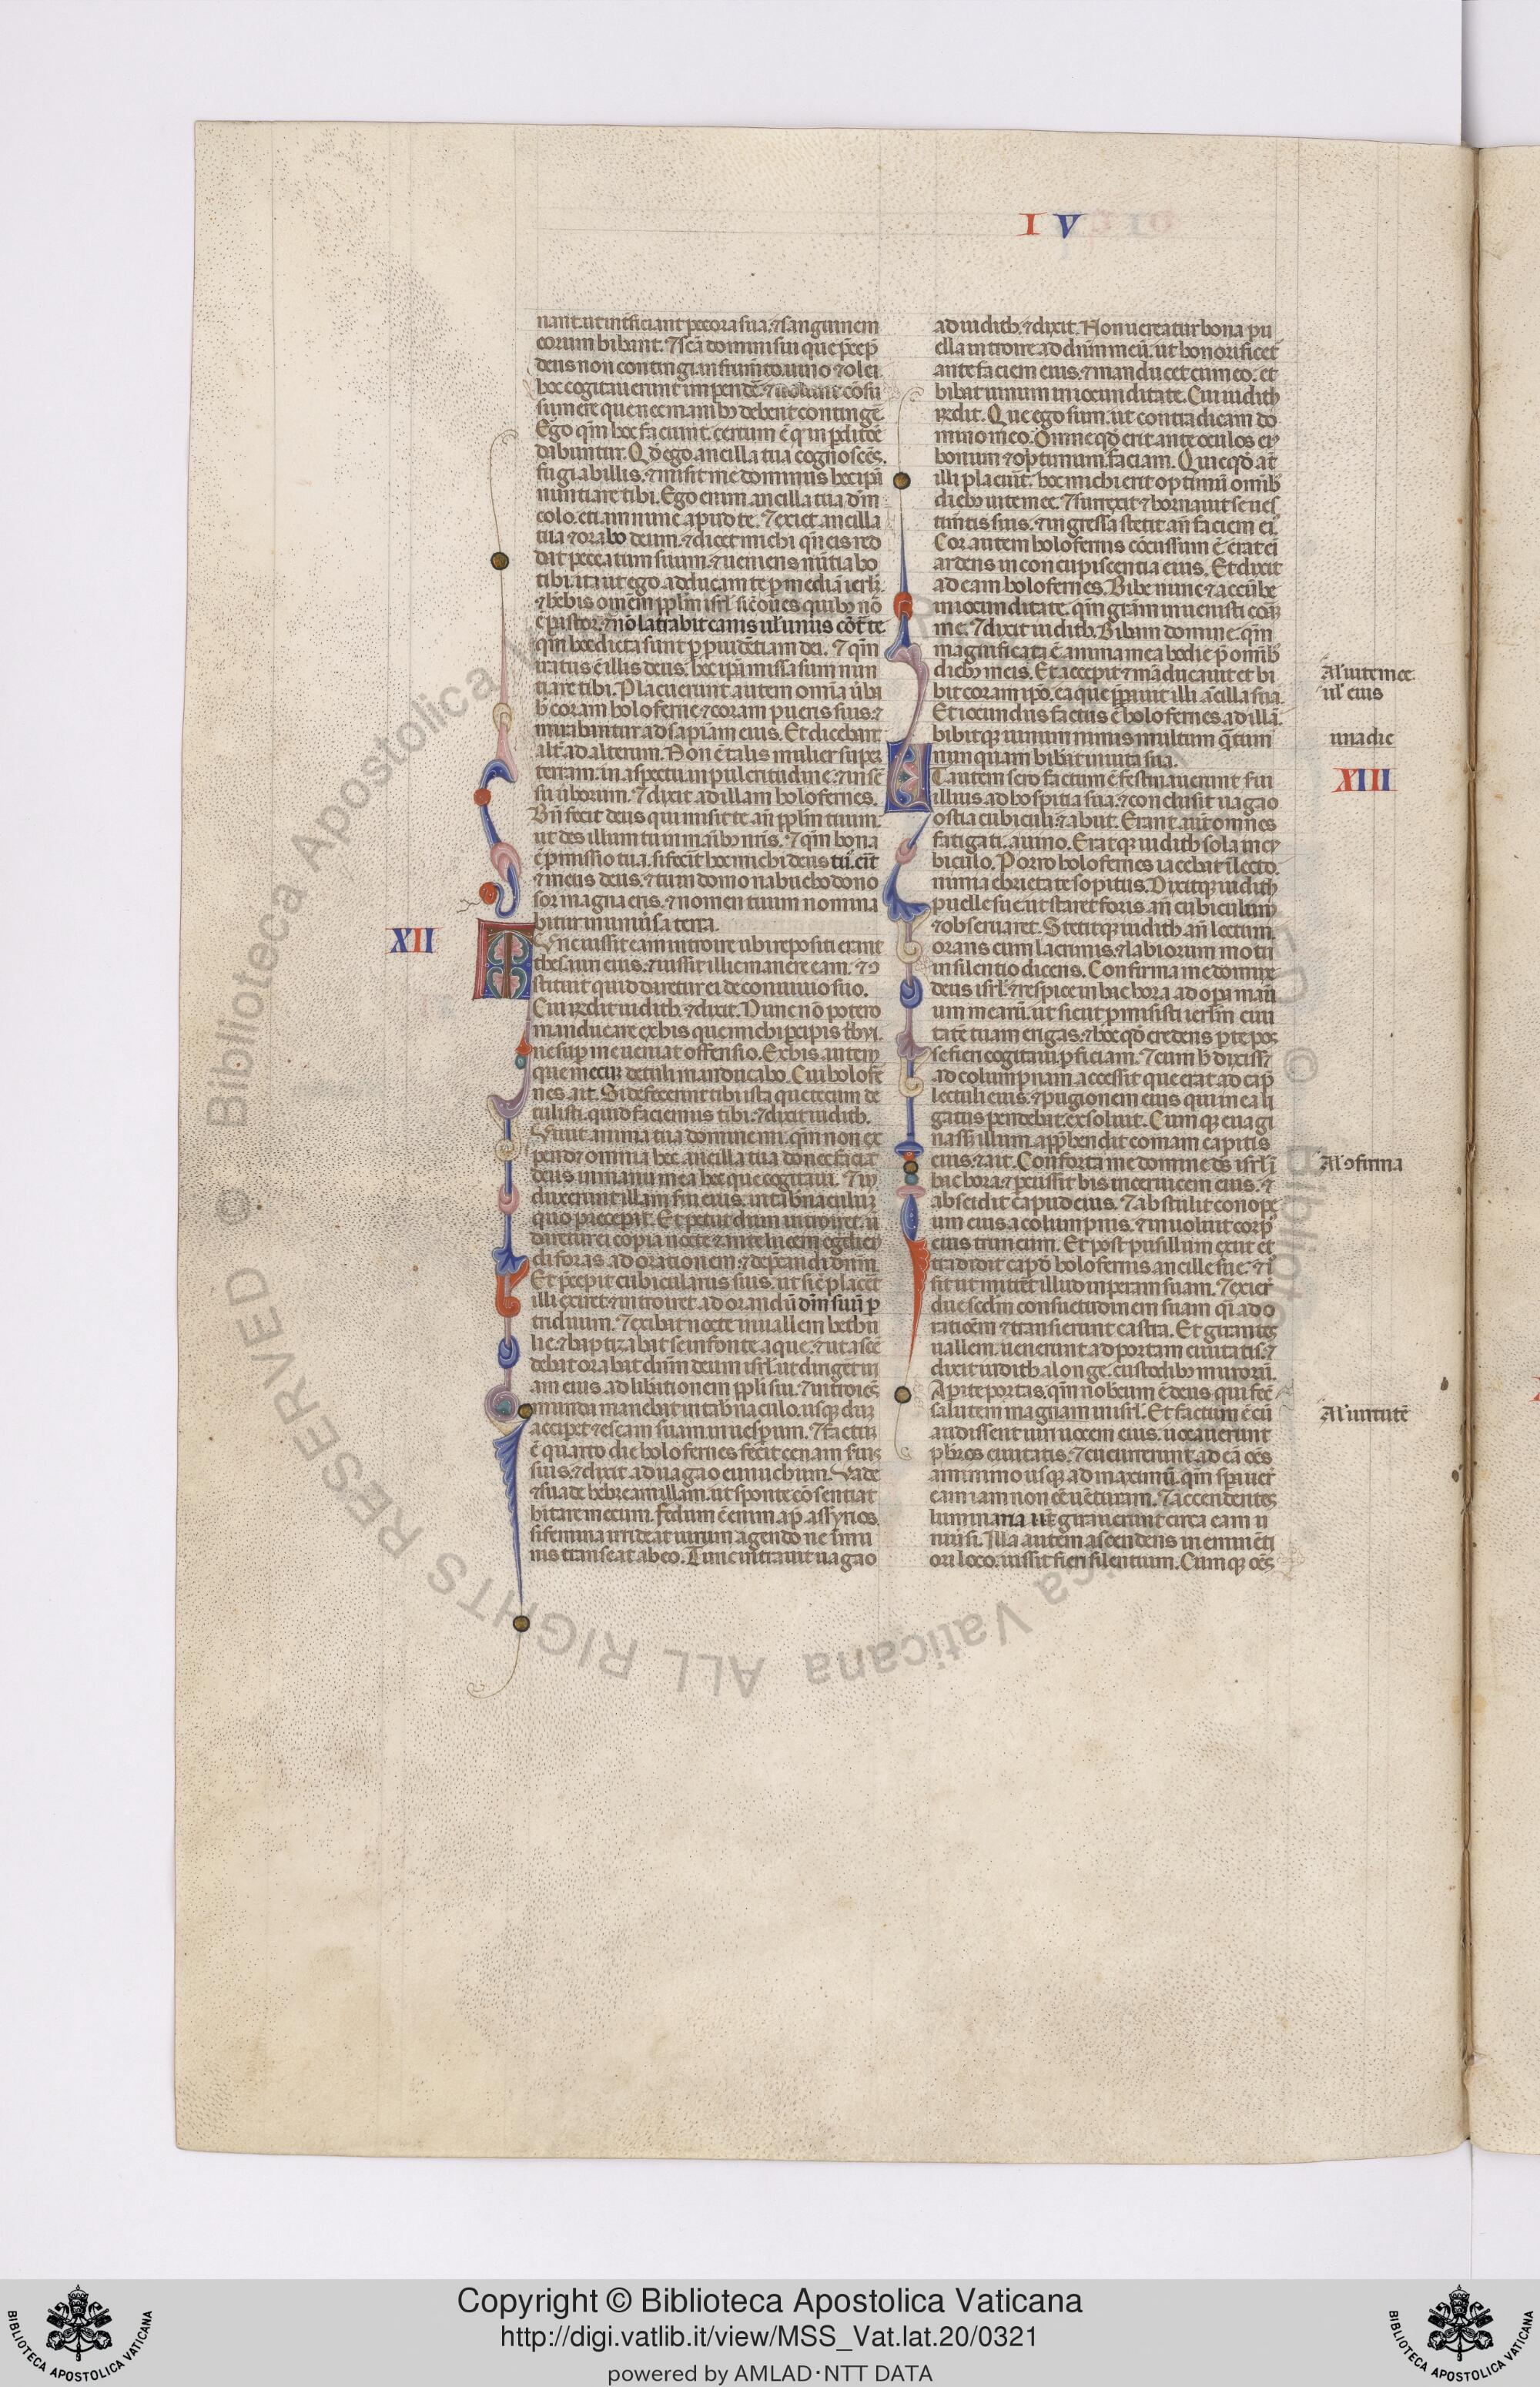 I V
nant. ut int̃ficiant pecora sua. ⁊ sanguinem
eorum bibant. ⁊ sc̃a domini sui que p̃cep̃
deus non contingi in frum̃to uino ⁊ oleo.
hec cogitauerunt impende. ⁊ uolunt cõsu
sumere que nec manibꝫ debent continge.
Ego qm̃ hec faciunt. certum ẽ ꝙ in pditiõe
dabuntur. Qd̃ ego ancilla tua cognoscẽs.
fugi ab illis. ⁊ misit me dominus hec ip̃a
nuntiare tibi. Ego enim ancilla tua dm̃
colo. etiam nunc apud te. ⁊ exiet ancilla
tua ⁊ orabo deum. ⁊ dicet michi qñ eis red
dat peccatum suum. ⁊ ueniens nũtiabo
tibi. ita ut ego adducam te p mediã ierl̃m.
⁊ hebis omẽm pplm̃ isrl̃. sic̃ oues quibꝫ nõ
ẽ pastor. ⁊ nõ latrabit canis ul̃ unus cõt̃ te
qm̃ hec dicta sunt p prouidẽtiam dei. ⁊ qm̃
iratus ẽ illis deus. hec ip̃a missa sum nun
tiare tibi. Placuerunt autem omĩa ũba
h̃ coram holoferne. ⁊ coram pueris suis. ⁊
mirabantur ad sapiam eius. Et dicebant
alt̃ ad alterum. Non ẽ talis mulier super
terram. in aspectu. in pulcritudine. ⁊ in sẽ
su ũborum. ⁊ dixit ad illam holofernes.
Bñ fecit deus qui misit te añ pplm̃ tuum.
ut des illum tu in manibꝫ nris. ⁊ qm̃ bona
ẽ pmissio tua. si fecit hoc michi deus tu᷑. erit
⁊ meus deus. ⁊ tu in domo nabuchodono
sor magna eris. ⁊ nomen tuum nomina
bitur in uniũsa terra.
XII
Tunc iussit eam introire ubi repositi erant
thesauri eius. ⁊ iussit illic manere eam. ⁊ ↄ
stituit quid daretur ei de conuiuio suo.
Cui r̃ndit iudith. ⁊ dixit. Nunc nõ potero
manducare ex his que michi precipis tbyi.
ne sup me ueniat offensio. Ex his autem
que mecum detuli manducabo. Cui holofe
nes ait. Si defecerint tibi ista que tecum de
tulisti. quid faciemus tibi. ⁊ dixit iudith.
Uiuit anima tua domine mi. qm̃ non ex
pendet omnia hec ancilla tua donec faciat
deus in manu mea hec que cogitaui. ⁊ in
duxerunt illam serui eius. in tab̃naculum
quo preceperat. Et petiit dum introiret. ut
daretur ei copia nocte ⁊ ante lucem egredien
di foras. ad orationem. ⁊ deprecandi dnm̃.
Et p̃cepit cubiculariis suis. ut sic̃ placet
illi exiret ⁊ introiret ad orandũ dm̃ suũ p
triduum. ⁊ exibat nocte in uallem bethu
lie. ⁊ baptizabat se in fonte aque. ⁊ ut ascẽ
debat orabat dnm̃ deum isrl̃. ut dirigeret ui
am eius. ad liberationem ppli sui. ⁊ introiẽs
munda manebat in tab̃naculo. usque dum
acciperet escam suam in uesperum. ⁊ factum
ẽ quarto die holofernes fecit cenam seruis
suis. ⁊ dixit ad uagao eunuchum. Uade
⁊ suade hebream illam. ut sponte cõsentiat
habitare mecum. Fedum ẽ enim ap̃ assyrios.
si femina irrideat uirum agendo ne immu
nis transeat ab eo. Tunc intrauit uagao
ad iudith. ⁊ dixit. Non uereatur bona pu
ella introire ad dnm̃ meũ. ut honorificet
ante faciem eius. ⁊ manducet cum eo. et
bibat uinum in iocunditate. Cui iudith
r̃ndit. Que ego sum. ut contradicam do
mino meo. Omne qd̃ erit ante oculos eiꝫ
bonum ⁊ optimum. faciam. Quicqd̃ aut̃
illi placuit. hoc michi erit optimũ omĩbꝫ
diebꝫ uite mee. ⁊ surrexit ⁊ hornauit se ues
timentis suis. ⁊ ingressa stetit añ faciem eiꝫ
Cor autem holofernis cõcussum ẽ. erat eĩ
ardens in concupiscentia eius. Et dixit
ad eam holofernes. Bibe nunc ⁊ accũbe
in iocunditate. qm̃ gr̃am inuenisti coram
me. ⁊ dixit iudith. Bibam domine. qm̃
magnificata ẽ anima mea hodie p̃ omĩbꝫ
diebꝫ meis. Et accepit ⁊ mãducauit et bi
bit coram ipõ. ea que pp̃auit illi ãcilla sua.
Et iocundus factus ẽ holofernes ad illã.
bibitque uinum nimis multum quãtum
nunquam biberat in uita sua.
Al' uite mee.
ul' eius
una die
XIII
Et autem sero factum ẽ. festinauerunt serui
illius ad hospitia sua. ⁊ conclusit uagao
ostia cubiculi. ⁊ abiit. Erant aũt omnes
fatigati. a uino. Eratque iudith sola in cu
biculo. Porro holofernes iacebat ĩ lecto.
nimia ebrietate sopitus. Dixitque iudith
puelle sue ut staret foris. añ cubiculum
⁊ obseruaret. Stetitque iudith añ lectum.
orans cum lacrimis. ⁊ labiorum motu
in silentio dicens. Confirma me domine
deus isrl̃. ⁊ respice in hac hora ad opa manu
um mearũ. ut sicut pmisisti ierl̃m ciui
tatẽ tuam erigas. ⁊ hoc qd̃ credens p te pos
se fieri cogitaui. pficiam. ⁊ cum h̃ dixiss̃
ad columpnam accessit que erat ad cap̃
lectuli eius. ⁊ pugionem eius qui in ea li
gatus pendebat. exsoluit. Cumque euagi
nass̃ illum. appr̃hendit comam capitis
eius. ⁊ ait. Conforta me domine ds̃ isrl̃ ĩ
hac hora. ⁊ percussit bis in ceruicem eius. ⁊
abscidit caput eius. ⁊ abstulit conope
um eius a columpnis. ⁊ inuoluit corpꝰ
eius truncum. Et post pusillum exiit et
tradidit caput holofernis ancille sue. ⁊ ius
sit ut mittet illud in peram suam. ⁊ exier̃
due scdm̃ consuetudinem suam q̃i ad o
rationẽm ⁊ transierunt castra. Et girantes
uallem. uenerunt ad portam ciuitatis. ⁊
dixit iudith a longe. custodibꝫ murorũ.
Aperite portas. qm̃ nobcum ẽ deus qui fec̃
salutem magnam in isrl̃. Et factum ẽ cũ
audissent uiri uocem eius. uocauerunt
p̃b̃ros ciuitatis. ⁊ cucurrerunt ad eã oẽs
a minimo usque ad maximũ. qm̃ spauer̃
eam iam non eẽ uẽturam. ⁊ accendentes
luminaria. ⁊ girauerunt circa eam u
niũsi. Illa autem ascendens in eminẽti
ori loco. iussit fieri silentium. Cumque oẽs
Al' ↄfirma
Al' uirtutẽ
Copyright © Biblioteca Apostolica Vaticana
http://digi.vatlib.it/view/MSS_Vat.lat.20/0321
powered by AMLAD·NTT DATA
BIBLIOTECA APOSTOLICA VATICANA
BIBLIOTECA APOSTOLICA VATICANA